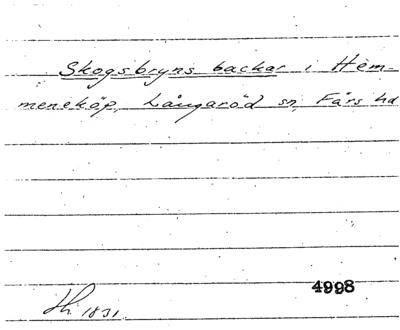 Skogsbryns backar i Hem-
meneköp, Långaröd sn, Färs hd
4998
1831